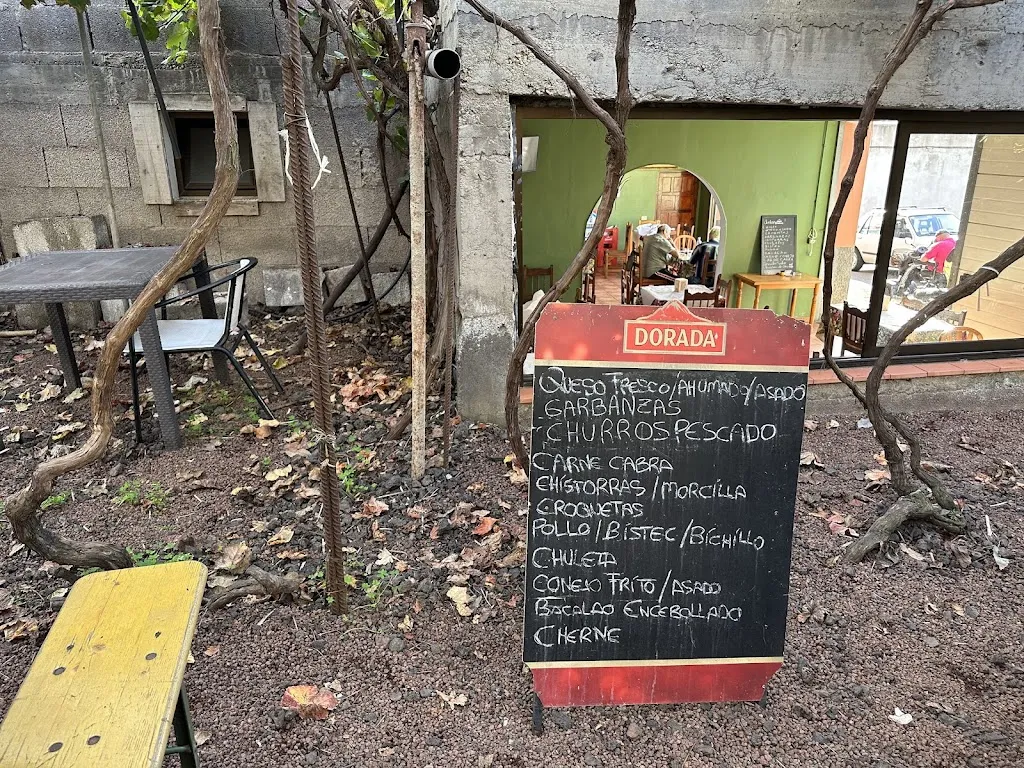 DORADA
QUESO FRESCO/AHUMADO/ASADO
GARBANZAS
-CHURROS PESCADO
CARNE CABRA
CHISTORRAS/MORCILLA
CROQUETAS
POLLO/BISTEC/BICHILLO
CHULETA
CONEJO FRITO/ASADO
BACALAO ENCEBOLLADO
CHERNE